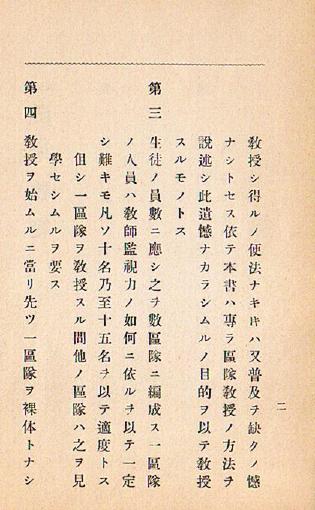 二
教授シ得ルノ便法ナキ𪜈ハ又普及ヲ缺クノ憾
ナシトセス依テ本書ハ專ラ區隊敎授ノ方法ヲ
説述シ此遺憾ナカラシムルノ目的ヲ以テ敎授
スルモノトス
第三 生徒ノ員數ニ應シ之ヲ數區隊ニ編成ス一區隊
ノ人員ハ敎師監視力ノ如何ニ依ルヲ以テ一定
シ難キモ凡ソ十名乃至十五名ヲ以テ適度トス
但シ一區隊ヲ敎授スル間他ノ區隊ハ之ヲ見
學セシムルヲ要ス
第四 敎授ヲ始ムルニ當リ先ツ一區隊ヲ裸体トナシ